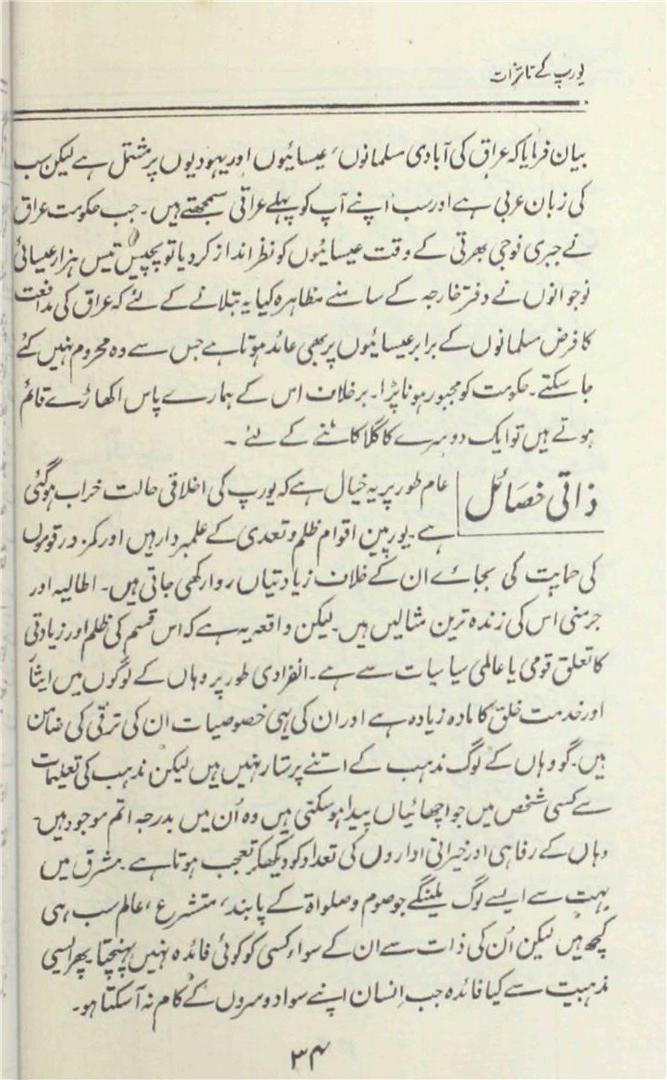 یورپ کے تاثرات
بیان فرمایا کہ عراق کی آبادی مسلمانوں، عیسائیوں اور یہودیوں پر مشتمل ہے لیکن سب
کی زبان عربی ہے اور سب اپنے آپ کو پہلے عراقی سمجھتے ہیں۔ جب حکومت عراق
نے جبری فوجی بھرتی کے وقت عیسائیوں کو نظر انداز کر دیا تو پچیس تیس ہزار عیسائی
نوجوانوں نے دفتر خارجہ کے سامنے مظاہرہ کیا یہ بتلانے کے لئے کہ عراق کی مدافعت
کا فرض مسلمانوں کے برابر عیسائیوں پر بھی عائد ہوتا ہے جس سے وہ محروم نہیں کئے
جا سکتے۔ حکومت کو مجبور ہونا پڑا۔ برخلاف اس کے ہمارے پاس اکھاڑے قائم
ہوتے ہیں تو ایک دوسرے کا گلا کاٹنے کے لئے ۔
ذاتی خصائل
عام طور پر یہ خیال ہے کہ یورپ کی اخلاقی حالت خراب ہو گئی
ہے۔ یورپین اقوام ظلم و تعدی کے علمبردار ہیں اور کمزور قوموں
کی حمایت کی بجائے ان کے خلاف زیادتیاں روا رکھی جاتی ہیں۔ اطالیہ اور
جرمنی اس کی زندہ ترین مثالیں ہیں۔ لیکن واقعہ یہ ہے کہ اس قسم کی ظلم اور زیادتی
کا تعلق قومی یا عالمی سیاسیات سے ہے۔ انفرادی طور پر وہاں کے لوگوں میں ایثار
اور خدمت خلق کا مادہ زیادہ ہے اور ان کی یہی خصوصیات ان کی ترقی کی ضامن
ہیں۔ گو وہاں کے لوگ مذہب کے اتنے پرستار نہیں ہیں لیکن مذہب کی تعلیمات
سے کسی شخص میں جو اچھائیاں پیدا ہو سکتی ہیں وہ اُن میں بدرجہ اتم موجود ہیں۔
وہاں کے رفاہی اور خیراتی اداروں کی تعداد کو دیکھکر تعجب ہوتا ہے۔ مشرق میں
بہت سے ایسے لوگ ملینگے جو صوم و صلواۃ کے پابند، متشرع، عالم سب ہی
کچھ ہیں لیکن اُن کی ذات سے ان کے سواء کسی کو کوئی فائدہ نہیں پہنچتا پھر ایسی
مذہبیت سے کیا فائدہ جب انسان اپنے سوا دوسروں کے کام نہ آسکتا ہو۔
۳۴